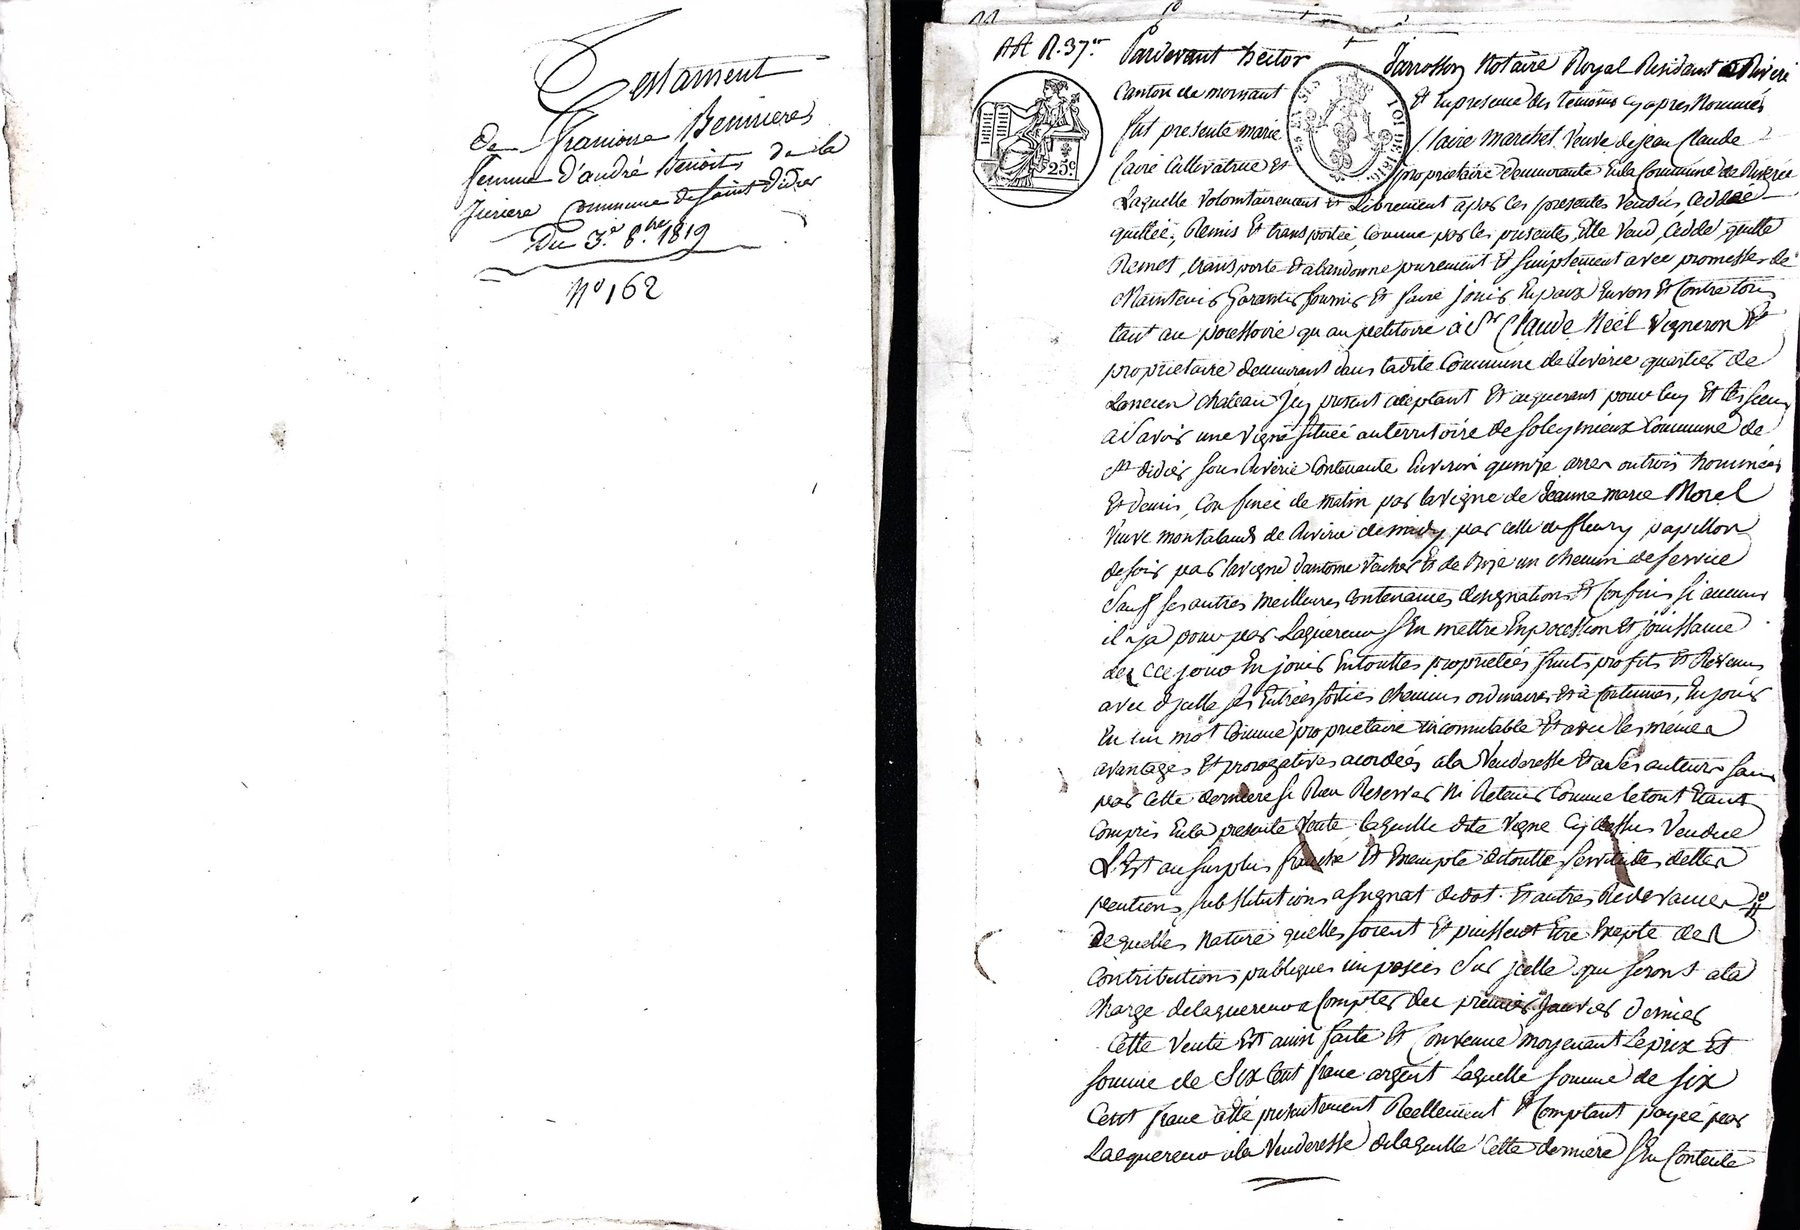 Testament
de Françoise Bennieres
femme d'andré Benoits de la
Juriere Commune de saint Didier
Du 3.e 8.bre 1819
N° 162
AA R. 37.
Pardevant hector Jarrosson Notaire Royal Residant a Riverie
Canton de mornant Et En presence des temoins cy apres Nommés
fut presente marie claire marchet Veuve de jean Claude
faire Cultivatrice Et proprietaire demeurante En la Commune de Riverie
Laquelle Volontairement Et Librement a par les presentes Vendus, ceddé
quittée, Remis Et transportée, Comme par les presentes, Elle Vend, Cedde, quitte
Remet, transporte & abandonne purement Et simplement avec promesse de
Maintenir Garantir fournir Et faire jouir En paix Envers Et Contre tous
tant au pocessoire qu au petitoire à Sr Claude Néel Vigneron Et
proprietaire demeurant dans ladite Commune de Riverie quartier de
Lancien chateau Jcy present aceptant Et aquerant pour luy Et les siens
a Savoir une vigne située au territoire de Soleymieux Commune de
St didier sous Riverie Contenante Environ quinze arres ou trois hommées
Et demis, Confinée de matin par la vigne de Jeanne marie Morel
Veuve montaland de Riverie de midy par celle de fleury papillon
de soir par la vigne d'antoine Vacher Et de Bize un chemin de service
Sauf ses autres meilleures Contenances designations Et Confins si aucuns
il y a pour par Laquereur S En mettre En pocession Et jouissance
des ce jour En jouir En touttes proprietées fruits profits Et Revenus
avec d jcelle ses Entrées sorties chemins ordinaires Et a Coutumés, En jouir
En un mot Comme proprietaire incommutable Et avec les mêmes
avantages Et prerogatives acordées a la Venderesse Et a Ses auteurs sans
par Cette derniere si Rien Reserver Ni Retenir Comme le tout Etant
Compris En la presente Vente laquelle dite Vigne Cy dessus Vendue
L'Est au surplus franche Et Exempte de toutte servitudes dettes
pentions, substitutions assignat de dot Et autres Redevances
de quelles Nature quelles soient Et puissent Etre Exepté des
Contributions publiques imposées Sur jcelle qui seront a la
charge de laquereur a Compter du premier Janvier dernier
Cette Vente Est ainsi faite Et Convenue moyenant Le prix Et
somme de Six Cent franc argent Laquelle somme de six
Cent franc a été presentement Réellement Et Comptant payée par
Laquereur a la Venderesse de laquelle Cette derniere S En Contente